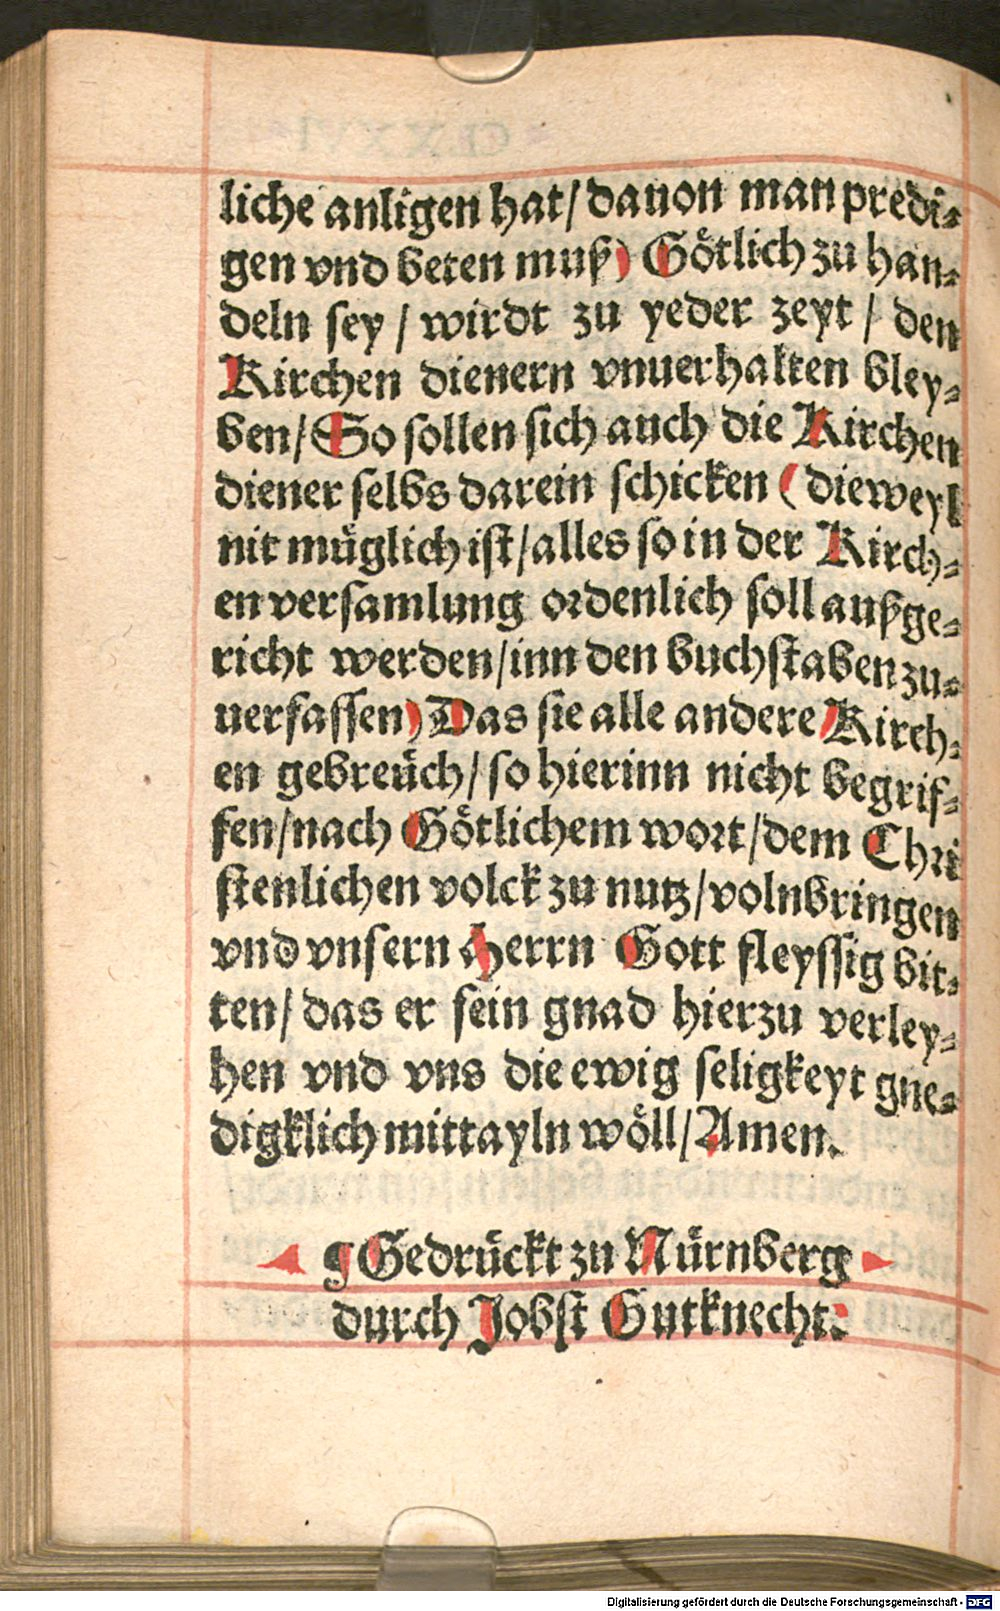 liche anligen hat/ dauon man predi⸗
gen vnd beten muß) Götlich zu han⸗
deln sey / wirdt zu yeder zeyt / den
Kirchen dienern vnuerhalten bley⸗
ben/ So sollen sich auch die Kirchen
diener selbs darein schicken (dieweyl
nit müglich ist/ alles so in der Kirch⸗
en versamlung ordenlich soll außge⸗
richt werden/ inn den buchstaben zu⸗
uerfassen) Das sie alle andere Kirch⸗
en gebreüch/ so hierinn nicht begrif⸗
fen/ nach Götlichem wort/ dem Chri
stenlichen volck zu nutz/ volnbringen
vnd vnsern Herrn Gott fleyssig bit⸗
ten/ das er sein gnad hierzu verley⸗
hen vnd vns die ewig seligkeyt gne⸗
digklich mittayln wöll/ Amen.
¶ Gedrückt zu Nürnberg
durch Jobst Gutknecht.
Digitalisierung gefördert durch die Deutsche Forschungsgemeinschaft - DFG